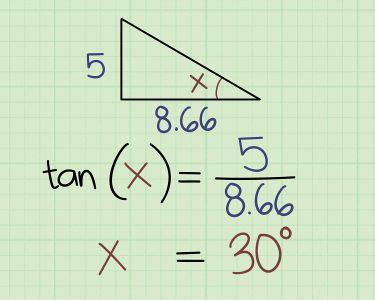 5
x
8.66
tan(x) = 5/8.66
x = 30°